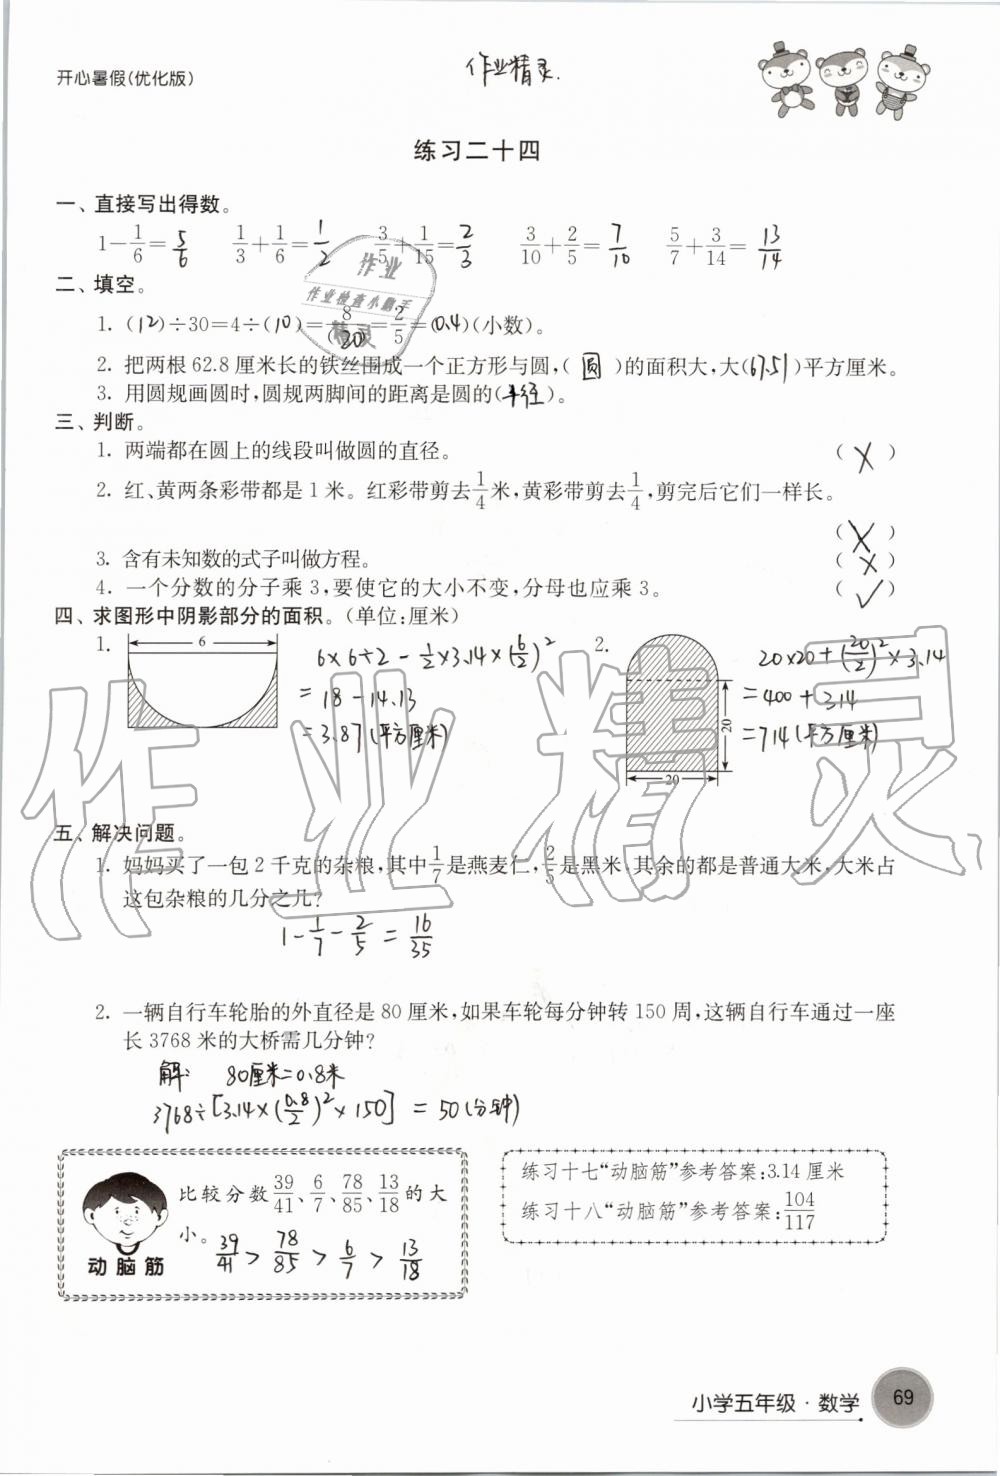 开心暑假(优化版)
作业精灵.
练习二十四
一、直接写出得数。
1-1/6=5/6 1/3+1/6=1/2 3/5+1/15=2/3 3/10+2/5=7/10 5/7+3/14=13/14
二、填空。
1. (12)÷30=4÷(10)=8/(20)=2/5=(0.4)(小数)。
2. 把两根62.8厘米长的铁丝围成一个正方形与圆,(圆)的面积大,大(67.51)平方厘米。
3. 用圆规画圆时,圆规两脚间的距离是圆的(半径)。
三、判断。
1. 两端都在圆上的线段叫做圆的直径。 (X)
2. 红、黄两条彩带都是1米。红彩带剪去1/4米,黄彩带剪去1/4,剪完后它们一样长。
(X)
3. 含有未知数的式子叫做方程。 (X)
4. 一个分数的分子乘3,要使它的大小不变,分母也应乘3。 (✓)
四、求图形中阴影部分的面积。(单位:厘米)
1. 6
6×6÷2-1/2×3.14×(6/2)²
=18-14.13
=3.87(平方厘米)
2. 20 20
20×20+(20/2)²×3.14
=400+314
=714(平方厘米)
五、解决问题。
1. 妈妈买了一包2千克的杂粮,其中1/7是燕麦仁,2/5是黑米,其余的都是普通大米,大米占
这包杂粮的几分之几?
1-1/7-2/5=16/35
2. 一辆自行车轮胎的外直径是80厘米,如果车轮每分钟转150周,这辆自行车通过一座
长3768米的大桥需几分钟?
解: 80厘米=0.8米
3768÷[3.14×(0.8/2)²×150]=50(分钟)
动脑筋
比较分数39/41、6/7、78/85、13/18的大
小。
39/41>78/85>6/7>13/18
练习十七“动脑筋”参考答案:3.14厘米
练习十八“动脑筋”参考答案:104/117
小学五年级·数学 69
作业
作业检查小帮手
精灵
作业精灵